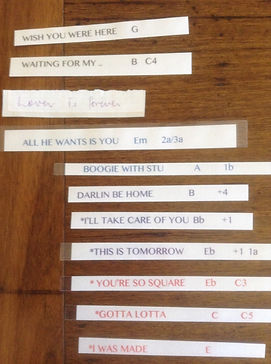 WISH YOU WERE HERE G
WAITING FOR MY .. B C4
Lover is forever
ALL HE WANTS IS YOU Em 2a/3a
BOOGIE WITH STU A 1b
DARLIN BE HOME B +4
*I'LL TAKE CARE OF YOU Bb +1
*THIS IS TOMORROW Eb +1 1a
* YOU'RE SO SQUARE Eb C3
*GOTTA LOTTA C C5
*I WAS MADE E